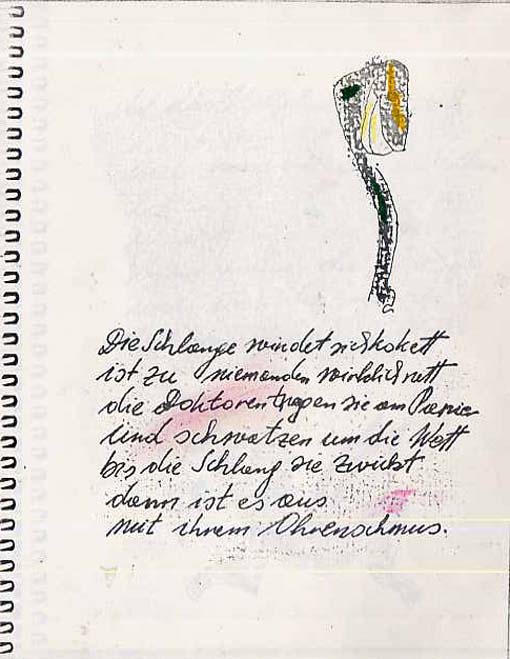 Die Schlange windet sich kokett
ist zu niemanden wirklich nett
die Doktoren tragen sie am Revier
Und schwatzen um die Wett
bis die Schlang sie zwickt
dann ist es aus
mit ihrem Ohrenschmus.